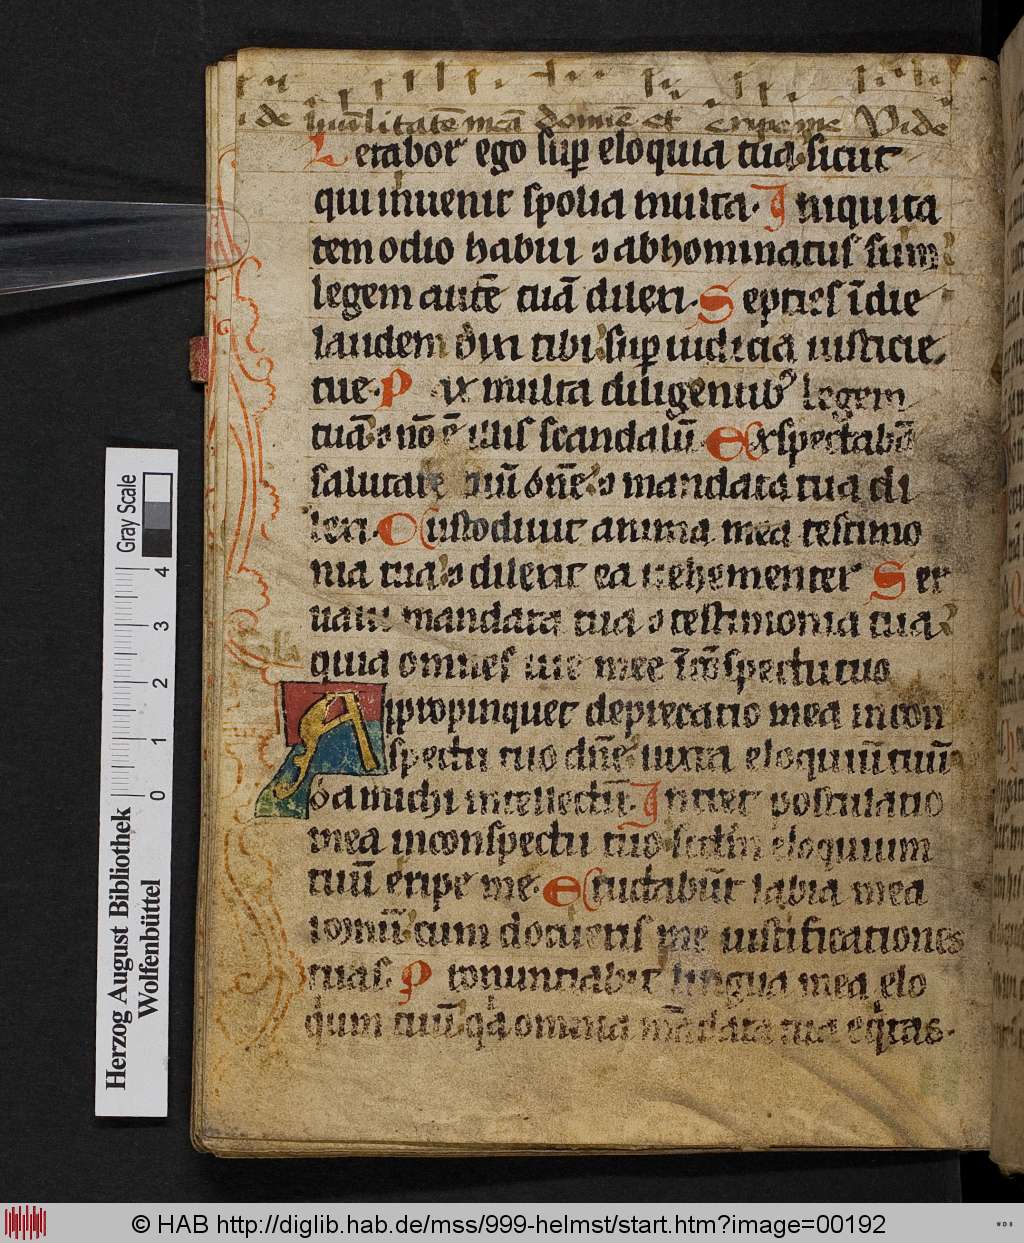 i de hũilitatẽ meã domiẽ et eripe me Vide
Letabor ego sup eloquia tua sicut
qui inuenit spolia multa. Iniquita
tem odio habui ⁊ abhominatus sum
legem autẽ tuã dilexi. Septies ĩ die
laudem dixi tibi sup iudicia iusticie
tue. Pax multa diligentib' legem
tuã ⁊ nõ ẽ illis scandalũ. Exspectabã
salutare tuũ dñe ⁊ mandata tua di
lexi. Custodiuit anima mea testimo
nia tua ⁊ dilexit ea vehementer Ser
uaui mandata tua ⁊ testimonia tua
quia omnes uie mee ĩ cõspectu tuo
Appropinquet deprecatio mea in con
spectu tuo dñe iuxta eloquiũ tuũ
da michi intellectũ. Intret postulatio
mea in conspectu tuo scdm eloquium
tuũ eripe me. Eructabũt labia mea
ympnũ cum docueris me iustificationes
tuas. Pronuntiabit lingua mea elo
quium tuũ qa omnia mãdata tua eqtas.
Gray Scale
4
3
2
1
0
Herzog August Bibliothek
Wolfenbüttel
© HAB http://diglib.hab.de/mss/999-helmst/start.htm?image=00192